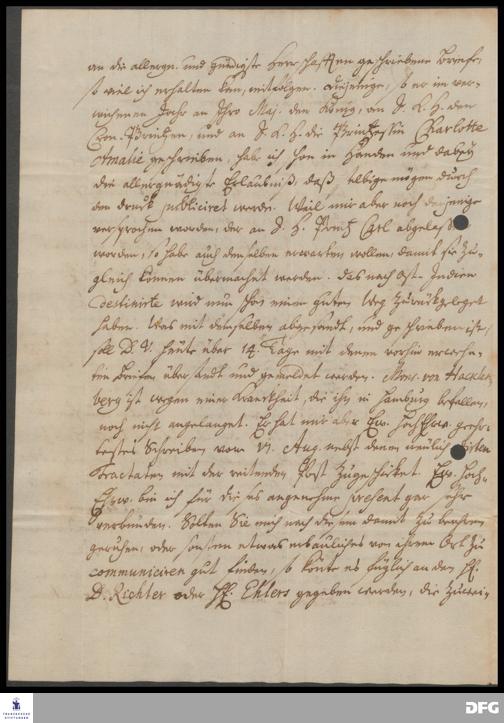 an die allergn. und gnädigste Herrschafften geschriebene Briefe,
so viel ich erhalten kan, mitfolgen. Diejenige, so er im ver-
wichenen Jahr an Ihro Maj. den König, an S. K. H. den
Cron-Printzen, und an S. K. H. die Printzessin Charlotte
Amalie geschrieben, habe ich schon in Händen und dabey
die allergnädigste Erlaubniß, daß selbige mögen durch
den druck publiciret werden. Weil mir aber noch derjenige
versprochen worden, der an S. H. Printz Carl abgelaßen
worden, so habe auch denselben erwarten wollen, damit sie zu-
gleich können übermachet werden. Das nach Ost-Indien
destinirte wird nun schon einen guten Weg zurückgeleget
haben. Was mit demselben abgesandt, und geschrieben ist,
soll D. V. heute über 14. Tage mit denen vorhin erwehn-
ten Briefen übersandt und gemeldet werden. Mons. von
berg ist wegen einer Kranckheit, die ihn in Hamburg befallen,
noch nicht angelanget. Er hat mir aber Ew. HochEhrw. geehr-
testes Schreiben vom Aug. nebst denen neulich
Tractaten mit der reitenden Post zugeschicket. Ew. Hoch-
Ehrw. bin ich für dieses angenehme present gar sehr
verbunden. Solten Sie mich nach diesem damit zu beehren
geruhen, oder sonsten etwas erbauliches von ihrem Ort zu
communiciren gut finden, so könte es füglich an den H.
D. Richter oder H. Ehlers gegeben werden, die zuwei-
FRANCKESCHE
STIFTUNGEN
DFG